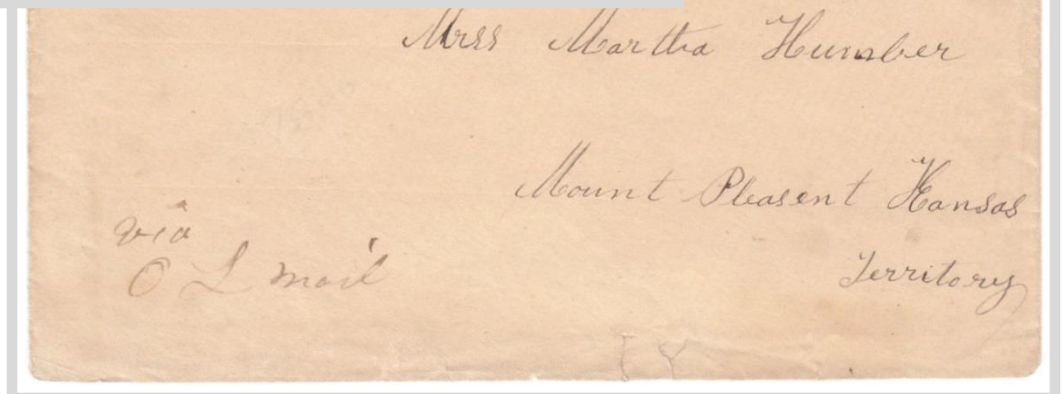 Mrss Martha Humber
Mount Pleasent Kansas
Territory
via
O L mail